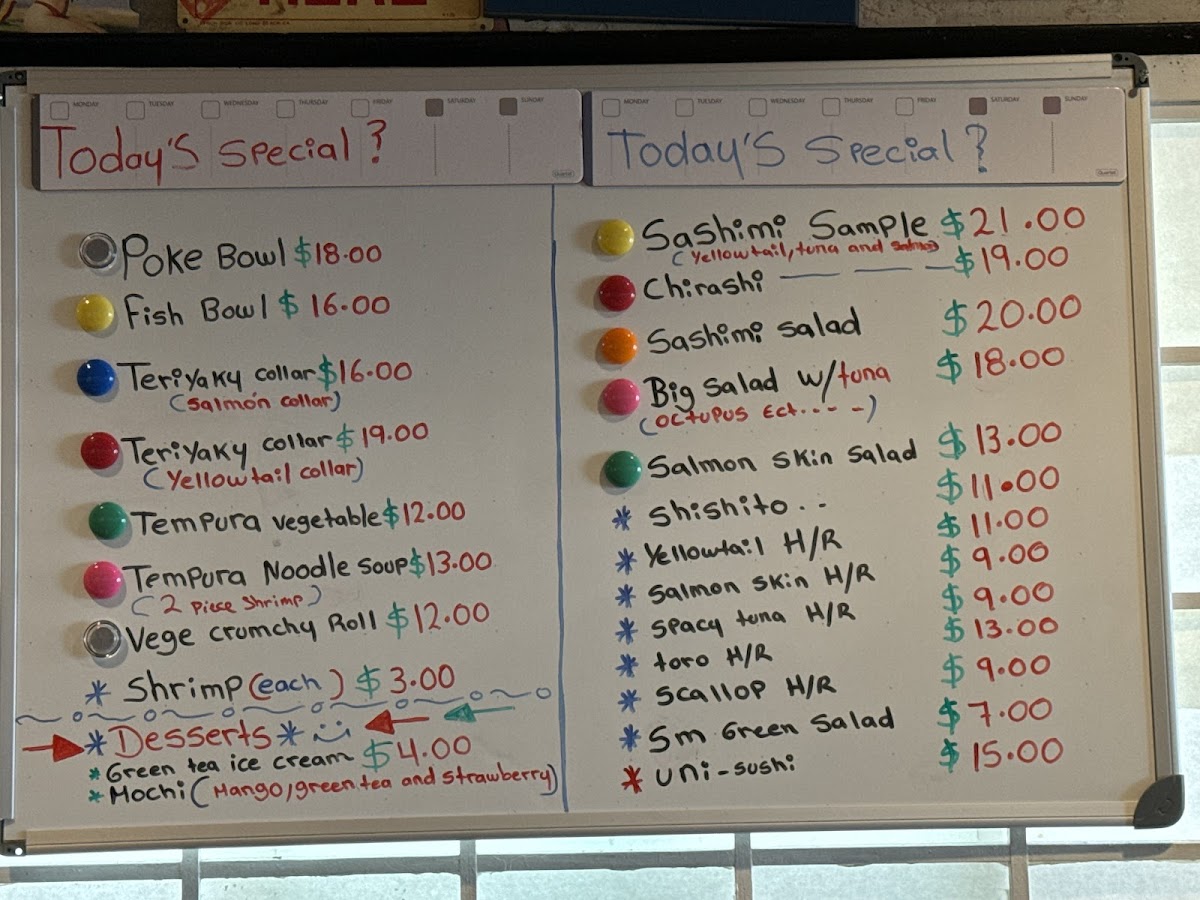 MONDAY TUESDAY WEDNESDAY THURSDAY FRIDAY SATURDAY SUNDAY
Today'S Special?
Poke Bowl $18.00
Fish Bowl $ 16.00
Teriyaky collar $16.00
(Salmon collar)
Teriyaky collar $19.00
(Yellowtail collar)
Tempura vegetable $12.00
Tempura Noodle soup $13.00
(2 piece shrimp)
Vege crumchy Roll $12.00
* Shrimp (each) $ 3.00
* Desserts *
* Green tea ice cream $4.00
* Mochi (Mango, green tea and strawberry)
MONDAY TUESDAY WEDNESDAY THURSDAY FRIDAY SATURDAY SUNDAY
Today'S Special?
Sashimi Sample $21.00
(Yellowtail, tuna and salmon)
Chirashi — — — — $19.00
Sashimi salad $20.00
Big Salad w/tuna $18.00
(Octupus Ect.... -)
Salmon skin salad $13.00
* shishito .. $11.00
* Yellowtail H/R $11.00
* Salmon skin H/R $9.00
* spacy tuna H/R $9.00
* toro H/R $13.00
* scallop H/R $9.00
* Sm Green Salad $7.00
* uni-sushi $15.00